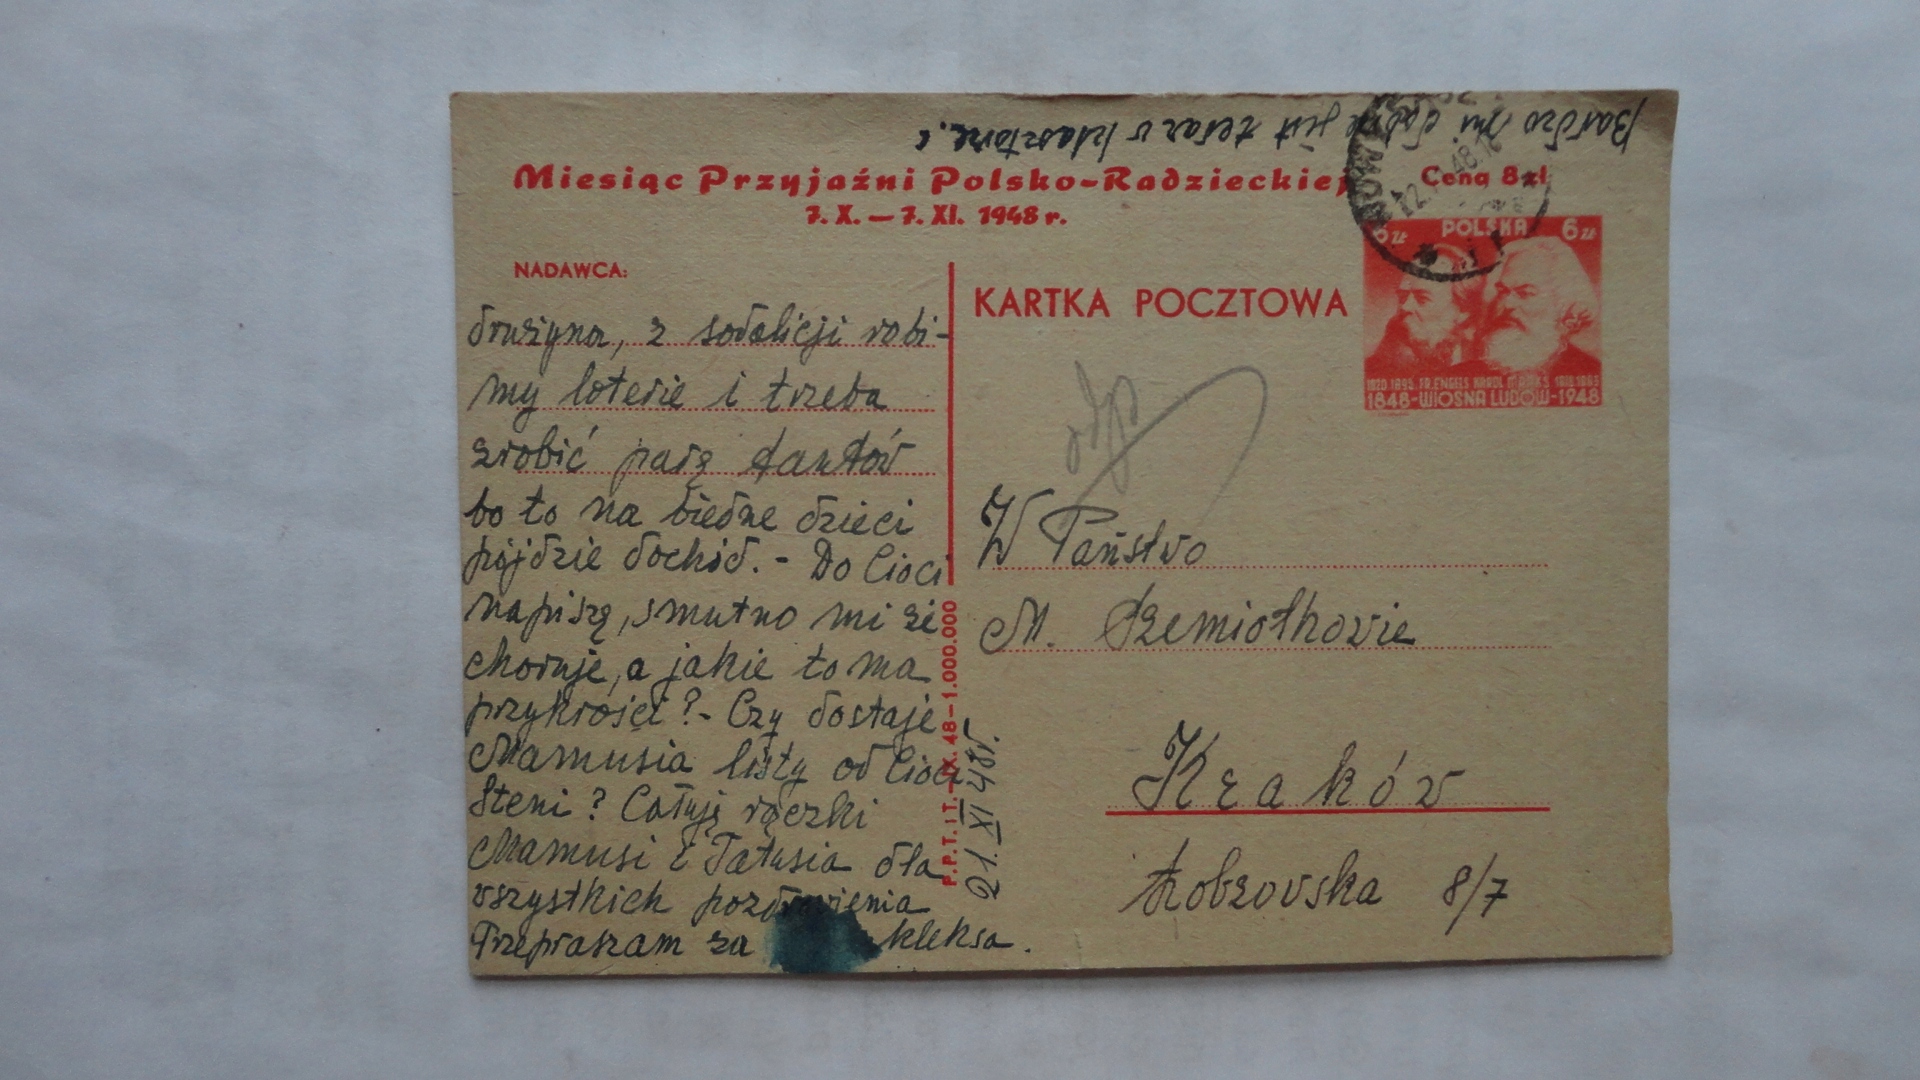 Bardzo mi dobrze jest teraz w klasztorze.
Miesiąc Przyjaźni Polsko-Radzieckiej
7. X. — 7. XI. 1948 r.
Cena 8 zł
6 zł POLSKA 6 zł
1820-1895. FR. ENGELS KAROL MARKS 1818-1883
1848-WIOSNA LUDÓW-1948
NADAWCA:
KARTKA POCZTOWA
drużyna, z sodalicji robi-
my loterie i trzeba
zrobić parę fantów
bo to na biedne dzieci
pójdzie dochód. - Do Cioci
napiszę, smutno mi że
choruje, a jakie to ma
przykrości? - Czy dostaje
Mamusia listy od Cioci
Steni? Całuję rączki
Mamusi i Tatusia dla
wszystkich pozdrowienia
Przepraszam za kleksa.
P.P.T. i T. - IX. 48 - 1.000.000
21. XI 48r.
odp
W Państwo
M. Dziemiołkowie
Kraków
Łobzowska 8/7